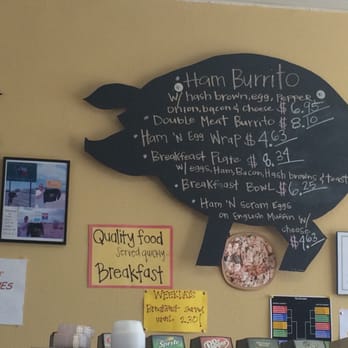 • Ham Burrito
w/ hash brown, egg, pepper
onion, bacon & cheese $6.95
• Double Meat Burrito $8.10
• Ham 'N Egg Wrap $4.63
• Breakfast Plate $8.34
w/ eggs, Ham, Bacon, Hash browns & toast
• Breakfast Bowl $6.25
• Ham 'N Scram Eggs
on English Muffin w/
cheese
$4.63
Quality food
served quickly
Breakfast
WEEKDAYS
Breakfast
until 2:30!
Sprite